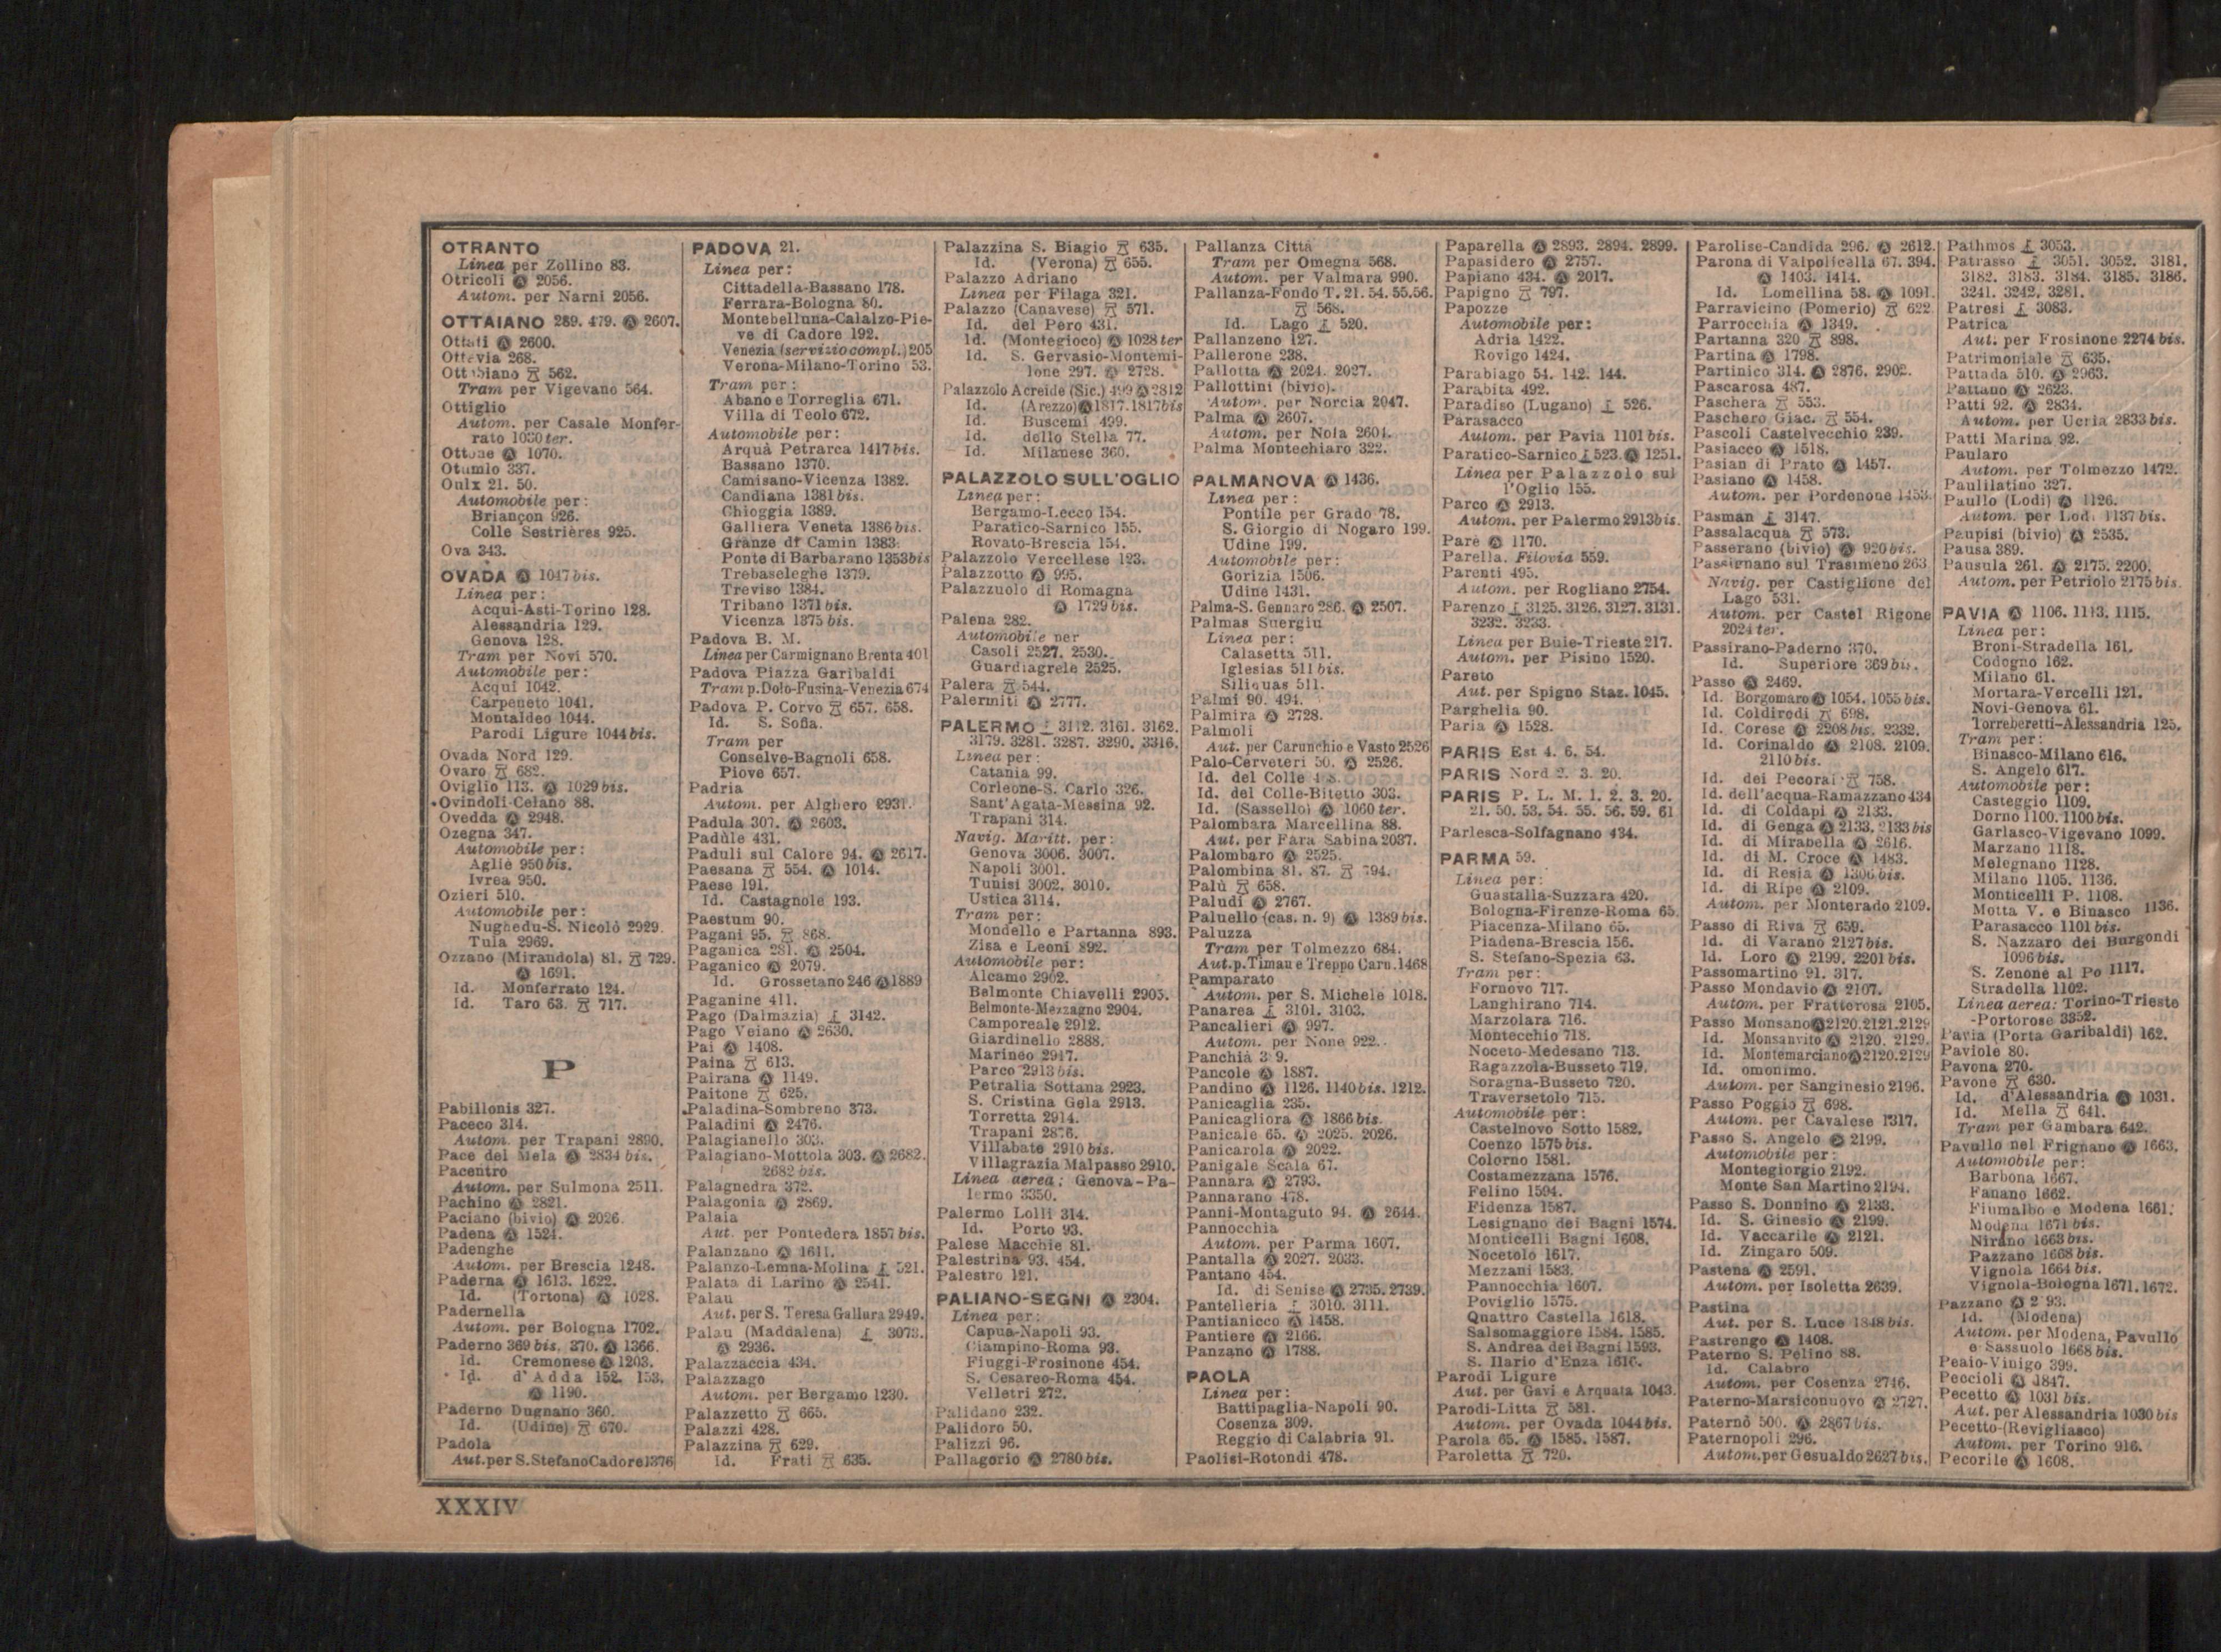 OTRANTO
Linea per Zollino 83.
Otricoli Ⓐ 2056.
Autom. per Narni 2056.
OTTAIANO 289. 479. Ⓐ 2607.
Ottati Ⓐ 2600.
Ottavia 268.
Ottobiano 562.
Tram per Vigevano 564.
Ottiglio
Autom. per Casale Monfer-
rato 1030 ter.
Ottone Ⓐ 1070.
Otumlo 337.
Oulx 21. 50.
Automobile per:
Briançon 926.
Colle Sestrières 925.
Ova 343.
OVADA Ⓐ 1047 bis.
Linea per:
Acqui-Asti-Torino 128.
Alessandria 129.
Genova 128.
Tram per Novi 570.
Automobile per:
Acqui 1042.
Carpeneto 1041.
Montaldeo 1044.
Parodi Ligure 1044 bis.
Ovada Nord 129.
Ovaro 682.
Oviglio 113. Ⓐ 1029 bis.
Ovindoli-Celano 88.
Ovedda Ⓐ 2948.
Ozegna 347.
Automobile per:
Agliè 950 bis.
Ivrea 950.
Ozieri 510.
Automobile per:
Nughedu-S. Nicolò 2929.
Tula 2969.
Ozzano (Mirandola) 81. 729.
Ⓐ 1691.
Id. Monferrato 124.
Id. Taro 63. 717.
P
Pabillonis 327.
Paceco 314.
Autom. per Trapani 2890.
Pace del Mela Ⓐ 2834 bis.
Pacentro
Autom. per Sulmona 2511.
Pachino Ⓐ 2821.
Paciano (bivio) Ⓐ 2026.
Padena Ⓐ 1524.
Padenghe
Autom. per Brescia 1248.
Paderna Ⓐ 1613. 1622.
Id. (Tortona) Ⓐ 1028.
Padernella
Autom. per Bologna 1702.
Paderno 369 bis. 370. Ⓐ 1366.
Id. Cremonese Ⓐ 1203.
Id. d'Adda 152. 153.
Ⓐ 1190.
Paderno Dugnano 360.
Id. (Udine) 670.
Padola
Aut. per S. Stefano Cadore 1376
PADOVA 21.
Linea per:
Cittadella-Bassano 178.
Ferrara-Bologna 80.
Montebelluna-Calalzo-Pie-
ve di Cadore 192.
Venezia (servizio compl.) 205
Verona-Milano-Torino 53.
Tram per:
Abano e Torreglia 671.
Villa di Teolo 672.
Automobile per:
Arquà Petrarca 1417 bis.
Bassano 1370.
Camisano-Vicenza 1382.
Candiana 1381 bis.
Chioggia 1389.
Galliera Veneta 1386 bis.
Granze di Camin 1383.
Ponte di Barbarano 1353 bis
Trebaseleghe 1379.
Treviso 1384.
Tribano 1371 bis.
Vicenza 1375 bis.
Padova B. M.
Linea per Carmignano Brenta 401
Padova Piazza Garibaldi
Tram p. Dolo-Fusina-Venezia 674
Padova P. Corvo 657. 658.
Id. S. Sofia.
Tram per
Conselve-Bagnoli 658.
Piove 657.
Padria
Autom. per Alghero 2931.
Padula 307. Ⓐ 2603.
Padùle 431.
Paduli sul Calore 94. Ⓐ 2617.
Paesana 554. Ⓐ 1014.
Paese 191.
Id. Castagnole 193.
Paestum 90.
Pagani 95. 868.
Paganica 281. Ⓐ 2504.
Paganico Ⓐ 2079.
Id. Grossetano 246 Ⓐ 1889
Paganine 411.
Pago (Dalmazia) 3142.
Pago Veiano Ⓐ 2630.
Pai Ⓐ 1408.
Paina 613.
Pairana Ⓐ 1149.
Paitone 625.
Paladina-Sombreno 373.
Paladini Ⓐ 2476.
Palagianello 303.
Palagiano-Mottola 303. Ⓐ 2682.
2682 bis.
Palagnedra 372.
Palagonia Ⓐ 2869.
Palaia
Aut. per Pontedera 1857 bis.
Palanzano Ⓐ 1611.
Palanzo-Lemna-Molina 521.
Palata di Larino Ⓐ 2541.
Palau
Aut. per S. Teresa Gallura 2949.
Palau (Maddalena) 3073.
Ⓐ 2936.
Palazzaccia 434.
Palazzago
Autom. per Bergamo 1230.
Palazzetto 665.
Palazzi 428.
Palazzina 629.
Id. Frati 635.
Palazzina S. Biagio 635.
Id. (Verona) 655.
Palazzo Adriano
Linea per Filaga 321.
Palazzo (Canavese) 571.
Id. del Pero 431.
Id. (Montegioco) Ⓐ 1028 ter
Id. S. Gervasio-Montemi-
lone 297. Ⓐ 2728.
Palazzolo Acreide (Sic.) 499 Ⓐ 2812
Id. (Arezzo) Ⓐ 1817. 1817 bis
Id. Buscemi 499.
Id. dello Stella 77.
Id. Milanese 360.
PALAZZOLO SULL'OGLIO
Linea per:
Bergamo-Lecco 154.
Paratico-Sarnico 155.
Rovato-Brescia 154.
Palazzolo Vercellese 123.
Palazzotto Ⓐ 995.
Palazzuolo di Romagna
Ⓐ 1729 bis.
Palena 282.
Automobile per
Casoli 2527. 2530.
Guardiagrele 2525.
Palera 544.
Palermiti Ⓐ 2777.
PALERMO 3112. 3161. 3162.
3179. 3281. 3287. 3290. 3316.
Linea per:
Catania 99.
Corleone-S. Carlo 326.
Sant'Agata-Messina 92.
Trapani 314.
Navig. Maritt. per:
Genova 3006. 3007.
Napoli 3001.
Tunisi 3002. 3010.
Ustica 3114.
Tram per:
Mondello e Partanna 893.
Zisa e Leoni 892.
Automobile per:
Alcamo 2902.
Belmonte Chiavelli 2905.
Belmonte-Mezzagno 2904.
Camporeale 2912.
Giardinello 2888.
Marineo 2917.
Parco 2913 bis.
Petralia Sottana 2923.
S. Cristina Gela 2913.
Torretta 2914.
Trapani 2876.
Villabate 2910 bis.
Villagrazia Malpasso 2910.
Linea aerea: Genova-Pa-
lermo 3350.
Palermo Lolli 314.
Id. Porto 93.
Palese Macchie 81.
Palestrina 93. 454.
Palestro 121.
PALIANO-SEGNI Ⓐ 2304.
Linea per:
Capua-Napoli 93.
Ciampino-Roma 93.
Fiuggi-Frosinone 454.
S. Cesareo-Roma 454.
Velletri 272.
Palidano 232.
Palidoro 50.
Palizzi 96.
Pallagorio Ⓐ 2780 bis.
Pallanza Città
Tram per Omegna 568.
Autom. per Valmara 990.
Pallanza-Fondo T. 21. 54. 55. 56.
568.
Id. Lago 520.
Pallanzeno 127.
Pallerone 238.
Pallotta Ⓐ 2024. 2027.
Pallottini (bivio).
Autom. per Norcia 2047.
Palma Ⓐ 2607.
Autom. per Nola 2604.
Palma Montechiaro 322.
PALMANOVA Ⓐ 1436.
Linea per:
Pontile per Grado 78.
S. Giorgio di Nogaro 199.
Udine 199.
Automobile per:
Gorizia 1506.
Udine 1431.
Palma-S. Gennaro 286. Ⓐ 2507.
Palmas Suergiu
Linea per:
Calasetta 511.
Iglesias 511 bis.
Siliquas 511.
Palmi 90. 494.
Palmira Ⓐ 2728.
Palmoli
Aut. per Carunchio e Vasto 2526
Palo-Cerveteri 50. Ⓐ 2526.
Id. del Colle
Id. del Colle-Bitetto 303.
Id. (Sassello) Ⓐ 1060 ter.
Palombara Marcellina 88.
Aut. per Fara Sabina 2037.
Palombaro Ⓐ 2525.
Palombina 81. 87. 794.
Palù 658.
Paludi Ⓐ 2767.
Paluello (cas. n. 9) Ⓐ 1389 bis.
Paluzza
Tram per Tolmezzo 684.
Aut. p. Timau e Treppo Carn. 1468
Pamparato
Autom. per S. Michele 1018.
Panarea 3101. 3103.
Pancalieri Ⓐ 997.
Autom. per None 922.
Panchià
Pancole Ⓐ 1887.
Pandino Ⓐ 1126. 1140 bis. 1212.
Panicaglia 235.
Panicagliora Ⓐ 1866 bis.
Panicale 65. Ⓐ 2025. 2026.
Panicarola Ⓐ 2022.
Panigale Scala 67.
Pannara Ⓐ 2793.
Pannarano 478.
Panni-Montaguto 94. Ⓐ 2644.
Pannocchia
Autom. per Parma 1607.
Pantalla Ⓐ 2027. 2033.
Pantano 454.
Id. di Senise Ⓐ 2735. 2739.
Pantelleria 3010. 3111.
Pantianicco Ⓐ 1458.
Pantiere Ⓐ 2166.
Panzano Ⓐ 1788.
PAOLA
Linea per:
Battipaglia-Napoli 90.
Cosenza 309.
Reggio di Calabria 91.
Paolisi-Rotondi 478.
Paparella Ⓐ 2893. 2894. 2899.
Papasidero Ⓐ 2757.
Papiano 434. Ⓐ 2017.
Papigno 797.
Papozze
Automobile per:
Adria 1422.
Rovigo 1424.
Parabiago 54. 142. 144.
Parabita 492.
Paradiso (Lugano) 526.
Parasacco
Autom. per Pavia 1101 bis.
Paratico-Sarnico 523. Ⓐ 1251.
Linea per Palazzolo sul
l'Oglio 155.
Parco Ⓐ 2913.
Autom. per Palermo 2913 bis.
Parè Ⓐ 1170.
Parella. Filovia 559.
Parenti 495.
Autom. per Rogliano 2754.
Parenzo 3125. 3126. 3127. 3131.
3232. 3233.
Linea per Buie-Trieste 217.
Autom. per Pisino 1520.
Pareto
Aut. per Spigno Staz. 1045.
Parghelia 90.
Paria Ⓐ 1528.
PARIS Est 4. 6. 54.
PARIS Nord 2. 3. 20.
PARIS P. L. M. 1. 2. 3. 20.
21. 50. 53. 54. 55. 56. 59. 61
Parlesca-Solfagnano 434.
PARMA 59.
Linea per:
Guastalla-Suzzara 420.
Bologna-Firenze-Roma 65.
Piacenza-Milano 65.
Piadena-Brescia 156.
S. Stefano-Spezia 63.
Tram per:
Fornovo 717.
Langhirano 714.
Marzolara 716.
Montecchio 718.
Noceto-Medesano 713.
Ragazzola-Busseto 719.
Soragna-Busseto 720.
Traversetolo 715.
Automobile per:
Castelnovo Sotto 1582.
Coenzo 1575 bis.
Colorno 1581.
Costamezzana 1576.
Felino 1594.
Fidenza 1587.
Lesignano dei Bagni 1574.
Monticelli Bagni 1608.
Nocetolo 1617.
Mezzani 1583.
Pannocchia 1607.
Poviglio 1575.
Quattro Castella 1618.
Salsomaggiore 1584. 1585.
S. Andrea dei Bagni 1593.
S. Ilario d'Enza 1616.
Parodi Ligure
Aut. per Gavi e Arquata 1043.
Parodi-Litta 581.
Autom. per Ovada 1044 bis.
Parola 65. Ⓐ 1585. 1587.
Paroletta 720.
Parolise-Candida 296. Ⓐ 2612.
Parona di Valpolicella 67. 394.
Ⓐ 1403. 1414.
Id. Lomellina 58. Ⓐ 1091.
Parravicino (Pomerio) 622.
Parrocchia Ⓐ 1349.
Partanna 320 898.
Partina Ⓐ 1798.
Partinico 314. Ⓐ 2876. 2902.
Pascarosa 487.
Paschera 553.
Paschero Giac. 554.
Pascoli Castelvecchio 239.
Pasiacco Ⓐ 1518.
Pasian di Prato Ⓐ 1457.
Pasiano Ⓐ 1458.
Autom. per Pordenone 1453.
Pasman 3147.
Passalacqua 573.
Passerano (bivio) Ⓐ 920 bis.
Passignano sul Trasimeno 263
Navig. per Castiglione del
Lago 531.
Autom. per Castel Rigone
2024 ter.
Passirano-Paderno 370.
Id. Superiore 369 bis.
Passo Ⓐ 2469.
Id. Borgomaro Ⓐ 1054. 1055 bis.
Id. Coldirodi 698.
Id. Corese Ⓐ 2208 bis. 2332.
Id. Corinaldo Ⓐ 2108. 2109.
2110 bis.
Id. dei Pecorai 758.
Id. dell'acqua-Ramazzano 434
Id. di Coldapi Ⓐ 2133.
Id. di Genga Ⓐ 2133. 2133 bis
Id. di Mirabella Ⓐ 2616.
Id. di M. Croce Ⓐ 1483.
Id. di Resia Ⓐ 1306 bis.
Id. di Ripe Ⓐ 2109.
Autom. per Monterado 2109.
Passo di Riva 659.
Id. di Varano 2127 bis.
Id. Loro Ⓐ 2199. 2201 bis.
Passomartino 91. 317.
Passo Mondavio Ⓐ 2107.
Autom. per Fratterosa 2105.
Passo Monsano Ⓐ 2120. 2121. 2129
Id. Monsanvito Ⓐ 2120. 2129.
Id. Montemarciano Ⓐ 2120. 2129
Id. omonimo.
Autom. per Sanginesio 2196.
Passo Poggio 698.
Autom. per Cavalese 1317.
Passo S. Angelo Ⓐ 2199.
Automobile per:
Montegiorgio 2192.
Monte San Martino 2194.
Passo S. Donnino Ⓐ 2133.
Id. S. Ginesio Ⓐ 2199.
Id. Vaccarile Ⓐ 2121.
Id. Zingaro 509.
Pastena Ⓐ 2591.
Autom. per Isoletta 2639.
Pastina
Aut. per S. Luce 1848 bis.
Pastrengo Ⓐ 1408.
Paterno S. Pelino 88.
Id. Calabro
Autom. per Cosenza 2746.
Paterno-Marsiconuovo Ⓐ 2727.
Paternò 500. Ⓐ 2867 bis.
Paternopoli 296.
Autom. per Gesualdo 2627 bis.
Pathmos 3053.
Patrasso 3051. 3052. 3181.
3182. 3183. 3184. 3185. 3186.
3241. 3242. 3281.
Patresi 3083.
Patrica
Aut. per Frosinone 2274 bis.
Patrimoniale 635.
Pattada 510. Ⓐ 2963.
Pattano Ⓐ 2623.
Patti 92. Ⓐ 2834.
Autom. per Ucria 2833 bis.
Patti Marina 92.
Paularo
Autom. per Tolmezzo 1472.
Paulilatino 327.
Paullo (Lodi) Ⓐ 1126.
Autom. per Lodi 1137 bis.
Paupisi (bivio) Ⓐ 2535.
Pausa 389.
Pausula 261. Ⓐ 2175. 2200.
Autom. per Petriolo 2175 bis.
PAVIA Ⓐ 1106. 1113. 1115.
Linea per:
Broni-Stradella 161.
Codogno 162.
Milano 61.
Mortara-Vercelli 121.
Novi-Genova 61.
Torreberetti-Alessandria 125.
Tram per:
Binasco-Milano 616.
S. Angelo 617.
Automobile per:
Casteggio 1109.
Dorno 1100. 1100 bis.
Garlasco-Vigevano 1099.
Marzano 1118.
Melegnano 1128.
Milano 1105. 1136.
Monticelli P. 1108.
Motta V. e Binasco 1136.
Parasacco 1101 bis.
S. Nazzaro dei Burgondi
1096 bis.
S. Zenone al Po 1117.
Stradella 1102.
Linea aerea: Torino-Trieste
-Portorose 3352.
Pavia (Porta Garibaldi) 162.
Paviole 80.
Pavona 270.
Pavone 630.
Id. d'Alessandria Ⓐ 1031.
Id. Mella 641.
Tram per Gambara 642.
Pavullo nel Frignano Ⓐ 1663.
Automobile per:
Barbona 1667.
Fanano 1662.
Fiumalbo e Modena 1661.
Modena 1671 bis.
Nirano 1663 bis.
Pazzano 1668 bis.
Vignola 1664 bis.
Vignola-Bologna 1671. 1672.
Pazzano Ⓐ
Id. (Modena)
Autom. per Modena, Pavullo
e Sassuolo 1668 bis.
Peaio-Vinigo 399.
Peccioli Ⓐ 1847.
Pecetto Ⓐ 1031 bis.
Aut. per Alessandria 1030 bis
Pecetto-(Revigliasco)
Autom. per Torino 916.
Pecorile Ⓐ 1608.
XXXIV